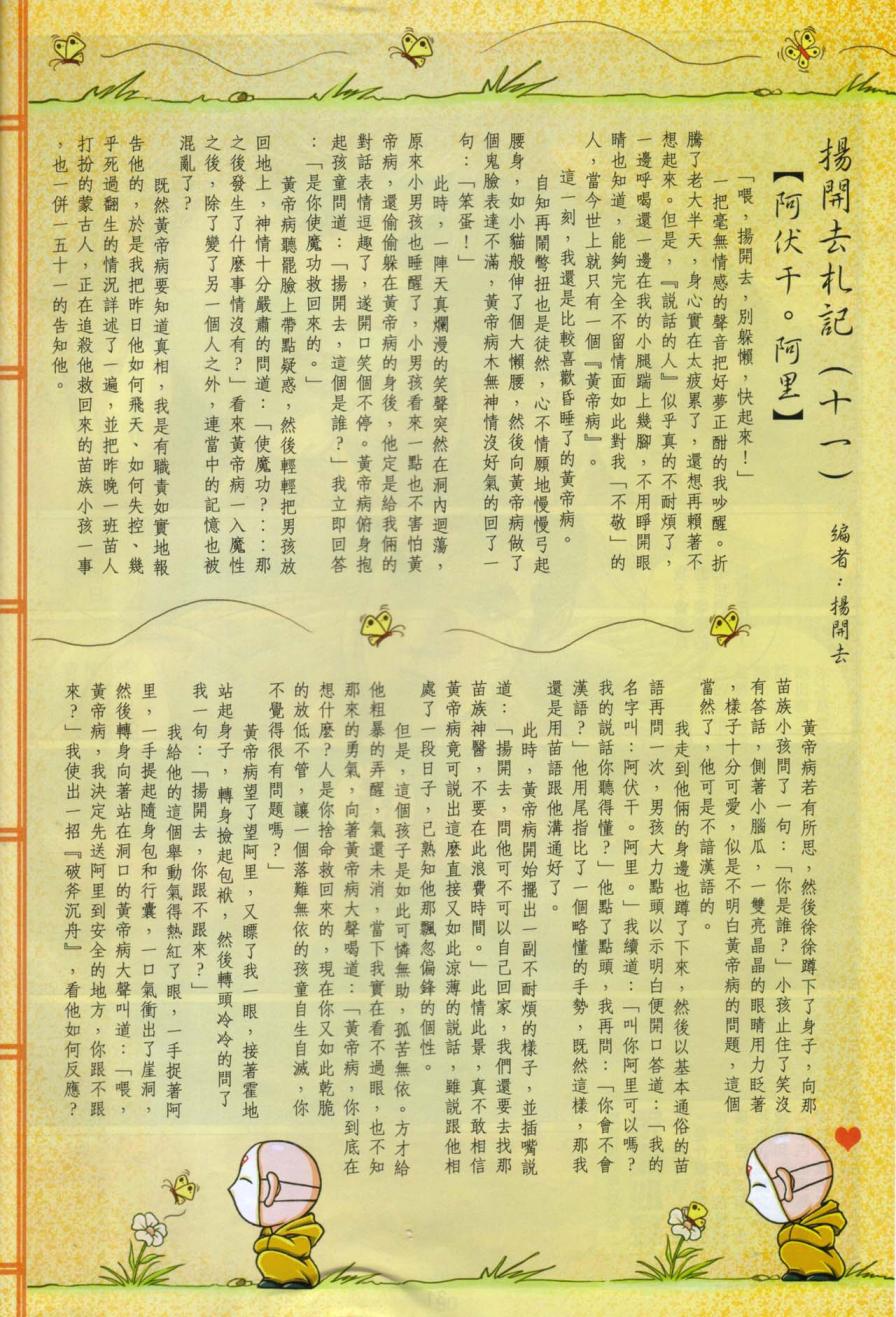 揚開去札記（十一）　編者：揚開去
【阿伏干。阿里】
「喂，揚開去，別躲懶，快起來！」
一把毫無情感的聲音把好夢正酣的我吵醒。折
騰了老大半天，身心實在太疲累了，還想再賴著不
想起來。但是，『說話的人』似乎真的不耐煩了，
一邊呼喝還一邊在我的小腿踹上幾腳，不用睜開眼
睛也知道，能夠完全不留情面如此對我「不敬」的
人，當今世上就只有一個『黃帝病』。
這一刻，我還是比較喜歡昏睡了的黃帝病。
自知再鬧彆扭也是徒然，心不情願地慢慢弓起
腰身，如小貓般伸了個大懶腰，然後向黃帝病做了
個鬼臉表達不滿，黃帝病木無神情沒好氣的回了一
句：「笨蛋！」
此時，一陣天真爛漫的笑聲突然在洞內迴蕩，
原來小男孩也睡醒了，小男孩看來一點也不害怕黃
帝病，還偷偷躲在黃帝病的身後，他定是給我倆的
對話表情逗趣了，遂開口笑個不停。黃帝病俯身抱
起孩童問道：「揚開去，這個是誰？」我立即回答
：「是你使魔功救回來的。」
黃帝病聽罷臉上帶點疑惑，然後輕輕把男孩放
回地上，神情十分嚴肅的問道：「使魔功？：：那
之後發生了什麼事情沒有？」看來黃帝病一入魔性
之後，除了變了另一個人之外，連當中的記憶也被
混亂了？
既然黃帝病要知道真相，我是有職責如實地報
告他的，於是我把昨日他如何飛天、如何失控、幾
乎死過翻生的情況詳述了一遍，並把昨晚一班苗人
打扮的蒙古人，正在追殺他救回來的苗族小孩一事
，也一併一五十一的告知他。
黃帝病若有所思，然後徐徐蹲下了身子，向那
苗族小孩問了一句：「你是誰？」小孩止住了笑沒
有答話，側著小腦瓜，一雙亮晶晶的眼睛用力眨著
，樣子十分可愛，似是不明白黃帝病的問題，這個
當然了，他可是不諳漢語的。
我走到他倆的身邊也蹲了下來，然後以基本通俗的苗
語再問一次，男孩大力點頭以示明白便開口答道：「我的
名字叫：阿伏干。阿里。」我續道：「叫你阿里可以嗎？
我的說話你聽得懂？」他點了點頭，我再問：「你會不會
漢語？」他用尾指比了一個略懂的手勢，既然這樣，那我
還是用苗語跟他溝通好了。
此時，黃帝病開始擺出一副不耐煩的樣子，並插嘴說
道：「揚開去，問他可不可以自己回家，我們還要去找那
苗族神醫，不要在此浪費時間。」此情此景，真不敢相信
黃帝病竟可說出這麼直接又如此涼薄的說話，雖說跟他相
處了一段日子，已熟知他那飄忽偏鋒的個性。
但是，這個孩子是如此可憐無助，孤苦無依。方才給
他粗暴的弄醒，氣還未消，當下我實在看不過眼，也不知
那來的勇氣，向著黃帝病大聲喝道：「黃帝病，你到底在
想什麼？人是你捨命救回來的，現在你又如此乾脆
的放低不管，讓一個落難無依的孩童自生自滅，你
不覺得很有問題嗎？」
黃帝病望了望阿里，又瞟了我一眼，接著霍地
站起身子，轉身撿起包袱，然後轉頭冷冷的問了
我一句：「揚開去，你跟不跟來？」
我給他的這個舉動氣得熱紅了眼，一手捉著阿
里，一手提起隨身包和行囊，一口氣衝出了崖洞，
然後轉身向著站在洞口的黃帝病大聲叫道：「喂，
黃帝病，我決定先送阿里到安全的地方，你跟不跟
來？」我使出一招『破斧沉舟』，看他如何反應？